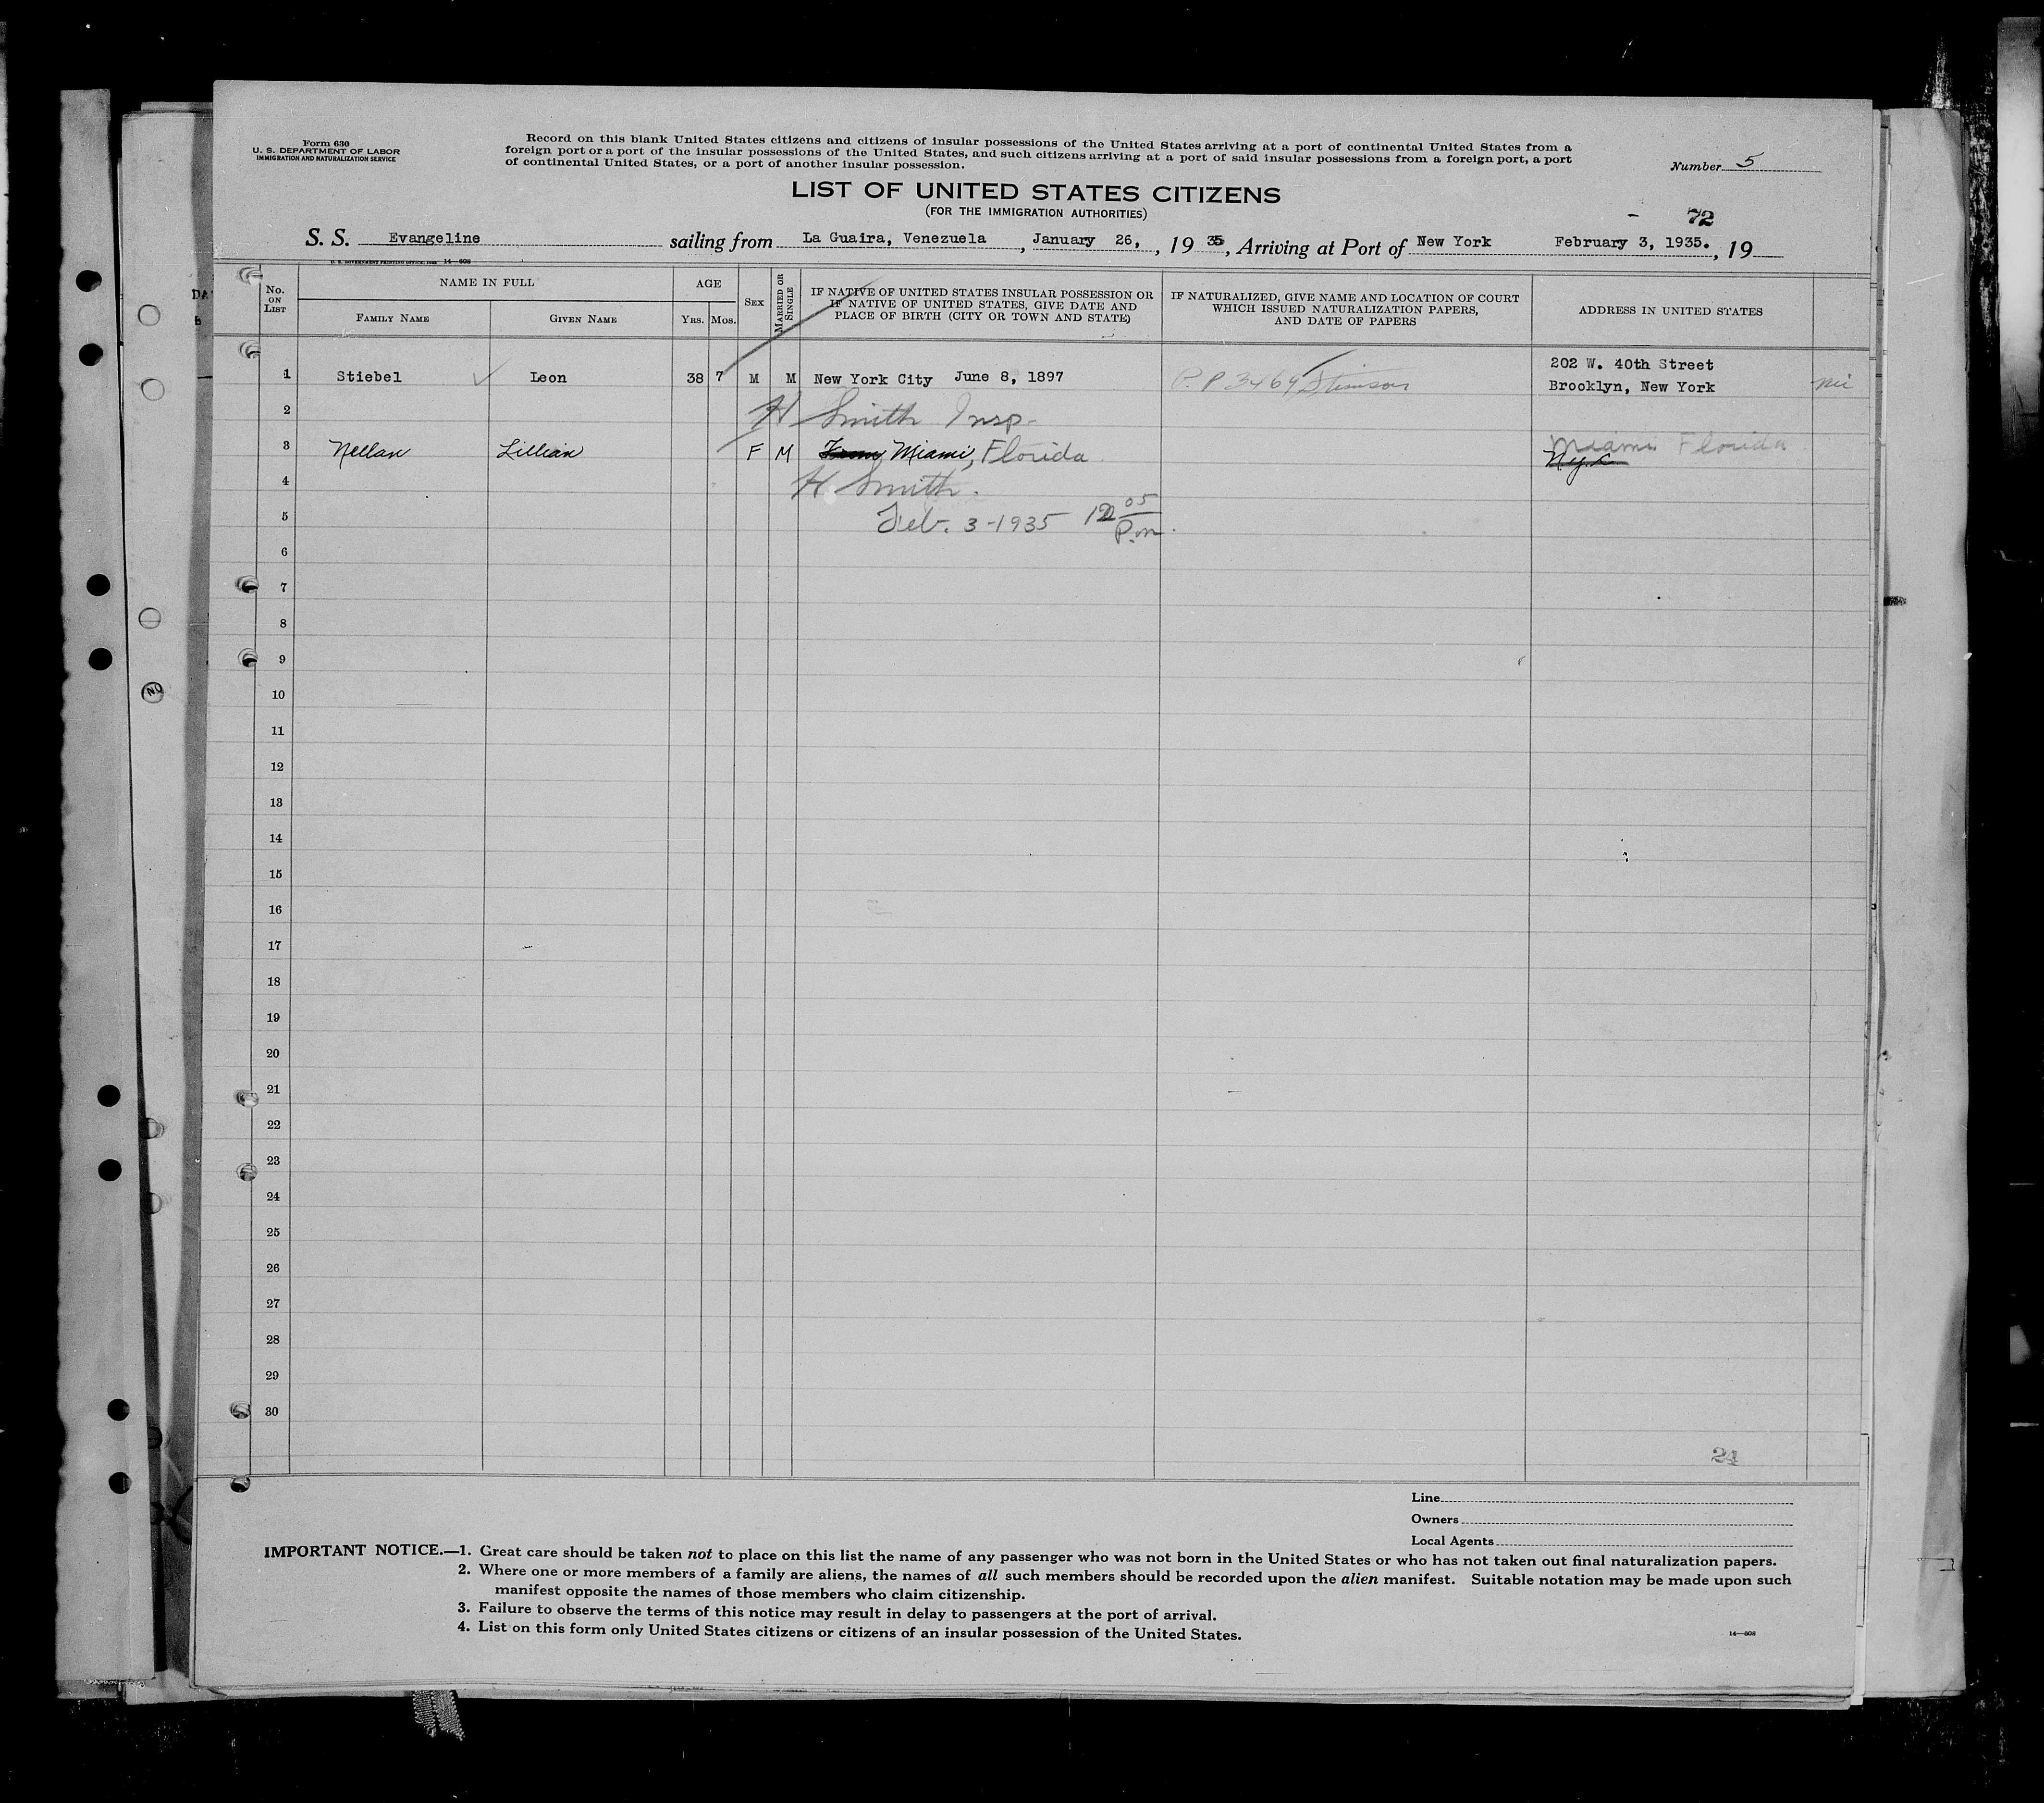 Form 630
U. S. DEPARTMENT OF LABOR
IMMIGRATION AND NATURALIZATION SERVICE
Record on this blank United States citizens and citizens of insular possessions of the United States arriving at a port of continental United States from a
foreign port or a port of the insular possessions of the United States, and such citizens arriving at a port of said insular possessions from a foreign port, a port
of continental United States, or a port of another insular possession.
Number 5
LIST OF UNITED STATES CITIZENS
(FOR THE IMMIGRATION AUTHORITIES)
- 72
S. S. Evangeline sailing from La Guaira, Venezuela, January 26, , 19 35, Arriving at Port of New York February 3, 1935. , 19
U. S. GOVERNMENT PRINTING OFFICE: 14—608
No. ON LIST
NAME IN FULL
FAMILY NAME
GIVEN NAME
AGE
YRS. MOS.
SEX
MARRIED OR SINGLE
IF NATIVE OF UNITED STATES INSULAR POSSESSION OR
IF NATIVE OF UNITED STATES, GIVE DATE AND
PLACE OF BIRTH (CITY OR TOWN AND STATE)
IF NATURALIZED, GIVE NAME AND LOCATION OF COURT
WHICH ISSUED NATURALIZATION PAPERS,
AND DATE OF PAPERS
ADDRESS IN UNITED STATES
1 Stiebel ✓ Leon 38 7 M M New York City June 8, 1897 P.P 3469 Stimson 202 W. 40th Street
Brooklyn, New York
2 H Smith Insp.
3 Nellan Lillian F M Miami, Florida Miami Florida
N.Y.C
4 H Smith.
5 Feb. 3-1935 12 05 P.m.
6
7
8
9
10
11
12
13
14
15
16
17
18
19
20
21
22
23
24
25
26
27
28
29
30
24
Line
Owners
Local Agents
IMPORTANT NOTICE.—1. Great care should be taken not to place on this list the name of any passenger who was not born in the United States or who has not taken out final naturalization papers.
2. Where one or more members of a family are aliens, the names of all such members should be recorded upon the alien manifest. Suitable notation may be made upon such
manifest opposite the names of those members who claim citizenship.
3. Failure to observe the terms of this notice may result in delay to passengers at the port of arrival.
4. List on this form only United States citizens or citizens of an insular possession of the United States.
14—608